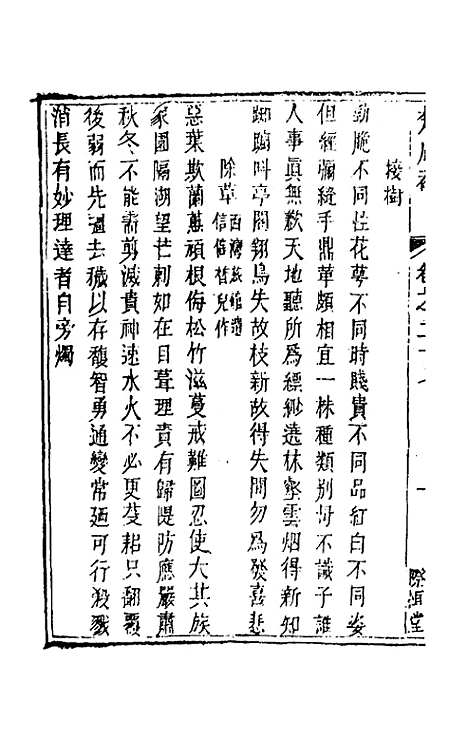 接樹
勁脆不同性花萼不同時賤貴不同品紅白不同姿
但經彌縫手鼎革頗相宜一株種類別母不識子誰
人事眞無歉天地聽所爲縹緲遶林壑雲烟得新知
踟躕叫亭閣翔鳥失故枝新故得失間勿爲發喜悲
除草 西灣族
信偕皆兒作
惡葉欺蘭蕙頑根侮松竹滋蔓戒難圖忍使大其族
家園隔湖望芒刺如在目葺理責有歸隄防應嚴肅
秋冬不能需剪滅貴神速水火不必更芟耜只翻覆
後弱而先過去穢以存馥智勇通變常廼可行殺戮
消長有妙理達者自旁燭